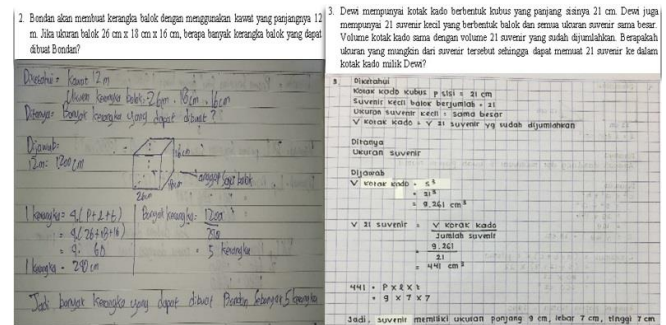 2. Bondan akan membuat kerangka balok dengan menggunakan kawat yang panjangnya 12
m. Jika ukuran balok 26 cm x 18 cm x 16 cm, berapa banyak kerangka balok yang dapat
dibuat Bondan?
Diketahui = Kawat 12 m
Ukuran kerangka balok: 26m . 18cm . 16cm
Ditanya = Banyak kerangka yang dapat dibuat ?
Dijawab:
12m = 1200 cm
16cm
18cm
26cm
anggap saja balok
1 kerangka = 4 (P+L+t)
= 4 (26+18+16)
= 4. 60
1 kerangka = 240 cm
Banyak kerangka = 1200
240
= 5 kerangka
Jadi banyak kerangka yang dapat dibuat Bondan Sebanyak 5 kerangka
3. Dewi mempunyai kotak kado berbentuk kubus yang panjang sisinya 21 cm. Dewi juga
mempunyai 21 suvenir kecil yang berbentuk balok dan semua ukuran suvenir sama besar.
Volume kotak kado sama dengan volume 21 suvenir yang sudah dijumlahkan. Berapakah
ukuran yang mungkin dari suvenir tersebut sehingga dapat memuat 21 suvenir ke dalam
kotak kado milik Dewi?
3. Diketahui
Kotak kado kubus P sisi = 21 cm
Suvenir kecil balok berjumlah = 21
Ukuran suvenir kecil = sama besar
V kotak kado = V 21 suvenir yg sudah dijumlahkan
Ditanya
Ukuran suvenir
Dijawab
V kotak kado = s³
= 21³
= 9.261 cm³
V 21 suvenir = V kotak kado
Jumlah suvenir
= 9.261
21
= 441 cm³
441 = P x l x t
= 9 x 7 x 7
Jadi, suvenir memiliki ukuran panjang 9 cm, lebar 7 cm, tinggi 7 cm